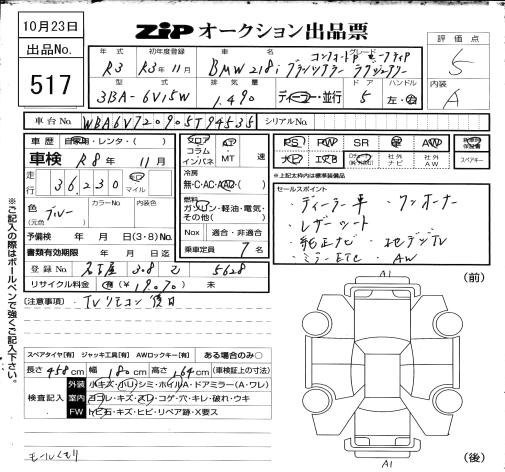 10月23日
ZiP オークション出品票
出品No.
517
評価点
5
内装
A
年式 初年度登録 車名 グレード
R3 R3年11月 BMW 218i グランツアラー ラグジュアリー
型式 排気量 ドア ハンドル
3BA-6V15W 1.490 ディーラー・並行 5 左・右
車台No. WBA6V720905T94535 シリアルNo.
車歴 自家用・レンタ・
車検 R8年 11月
走行 36,230 km マイル
色 ブルー
(元色) カラーNo. 内装色
予備検 年 月 日(3・8)No.
書類有効期限 年 月 日迄
登録No. 名古屋 308 5628
リサイクル料金 済 (¥19,070) 未
フロア コラム インパネ
AT・MT 速
冷房
無・C・AC・AAC
燃料
ガソリン・軽油・電気・その他( )
Nox 適合・非適合
乗車定員 7 名
PS PW SR 革 AW
ナビ エアB 社外ナビ 社外AW
スペアキー
*上記太枠は標準装備品
セールスポイント
・ディーラー車 ・ワンオーナー
・レザーシート
・純正ナビ
・ミラーETC ・AW
[注意事項・TVリモコン後日]
スペアタイヤ[有] ジャッキ工具[有] AWロックキー[有] ある場合のみ○
長さ 458cm 幅 180cm 高さ 164cm (車検証上の寸法)
検査記入
外装 小キズ・小リ・シミ・ホイルA・ドアミラー(A・ワレ)
室内 ヨゴレ・キズ・スレ・コゲ・穴・キレ・破れ・ウキ
FW トビ石・キズ・ヒビ・リペア跡・X要ス
モールくもり
A1
(前)
A1
(後)
※ご記入の際はボールペンで強くご記入下さい。